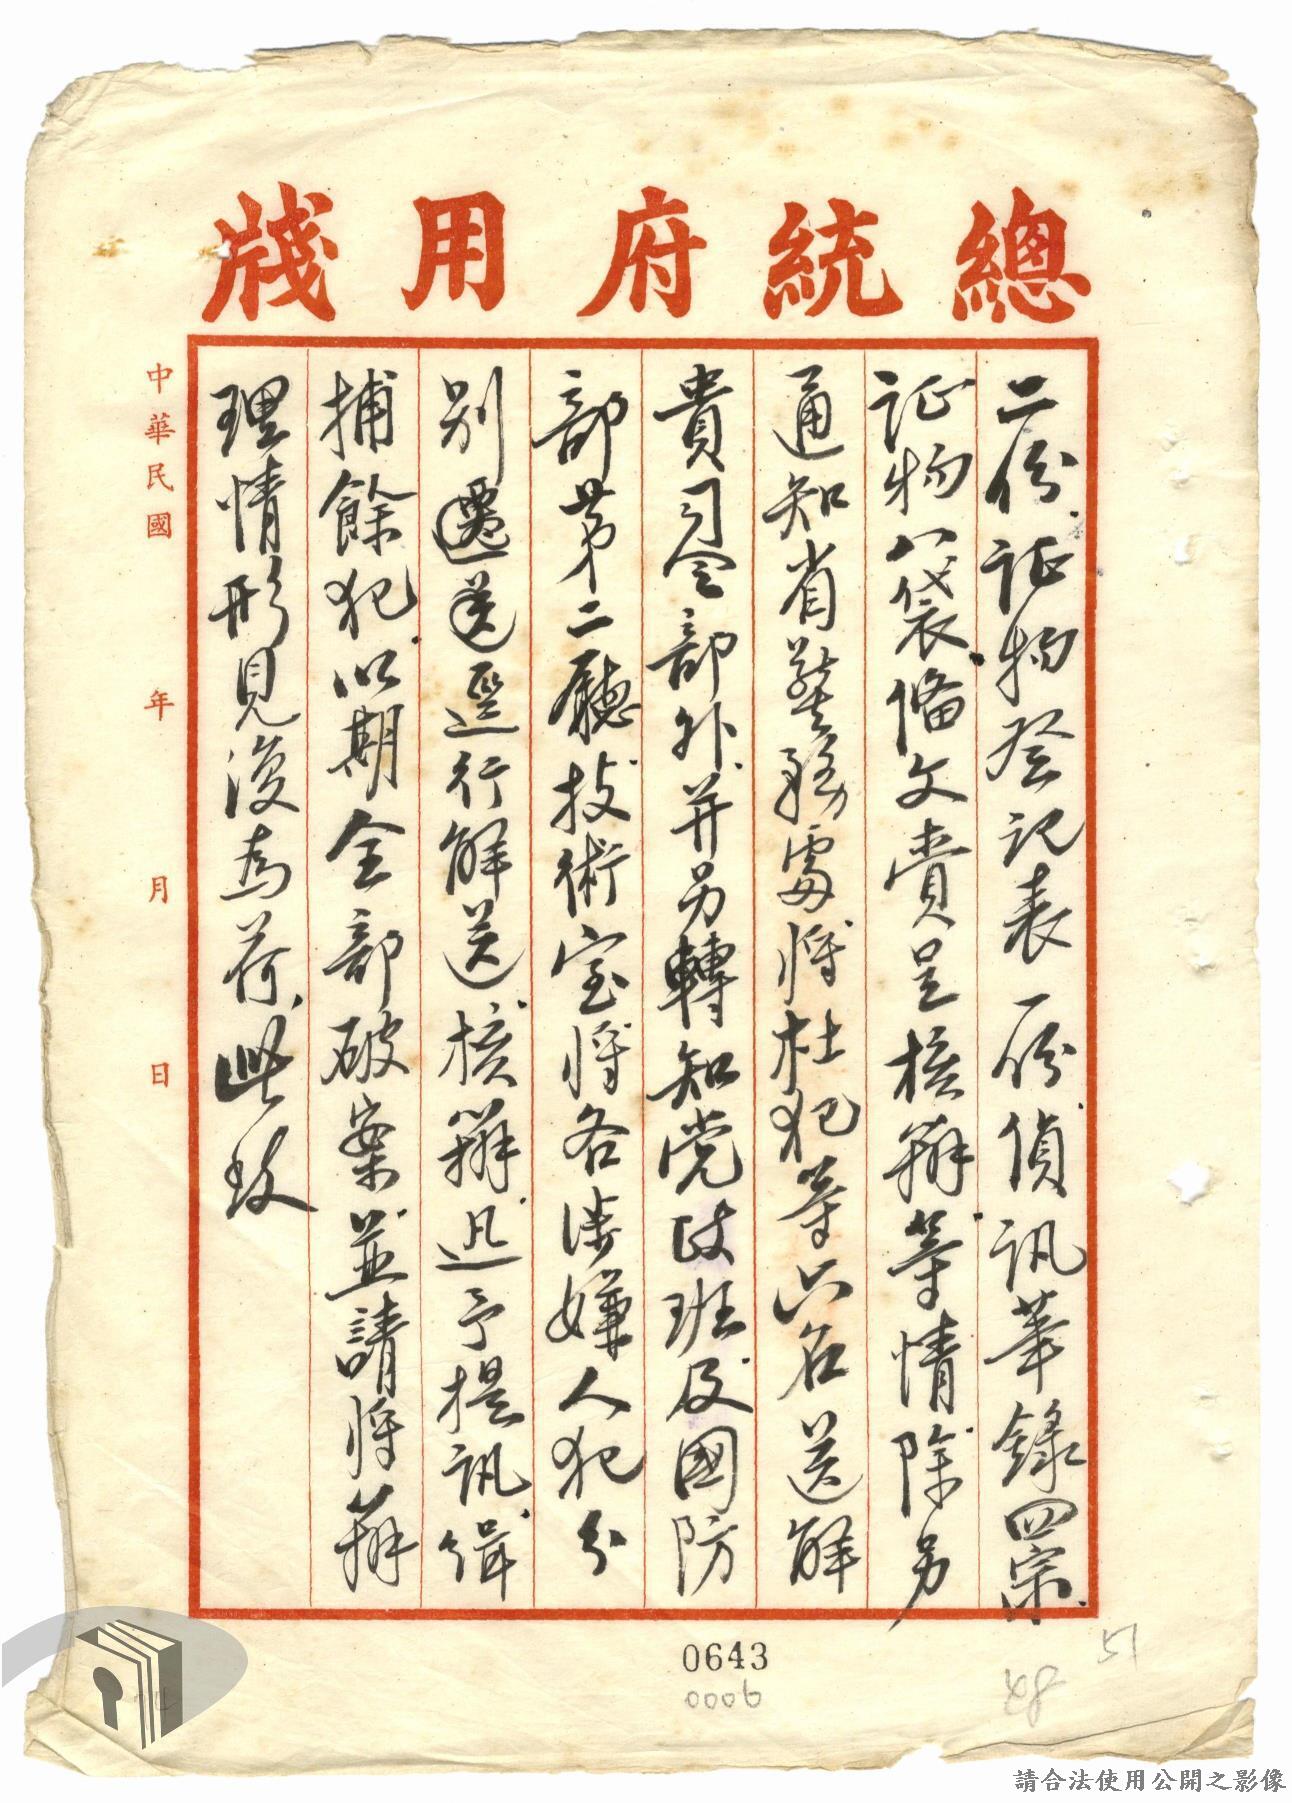 總統府用牋
二份.証物登記表一份.偵訊筆錄四宗.
証物八袋.備文賫呈核辦等情.除另
通知省警務處將杜犯等六名送解
貴司令部外.并另轉知党政班及國防
部第二廳技術室將各涉嫌人犯分
別遷送逕行解送.核辦.迅予提訊.緝
捕餘犯.以期全部破案.並請將辦
理情形見復為荷.此致
中華民國 年 月 日
0643
0006
48
51
請合法使用公開之影像